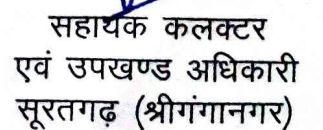 सहायक कलक्टर
एवं उपखण्ड अधिकारी
सूरतगढ़ (श्रीगंगानगर)